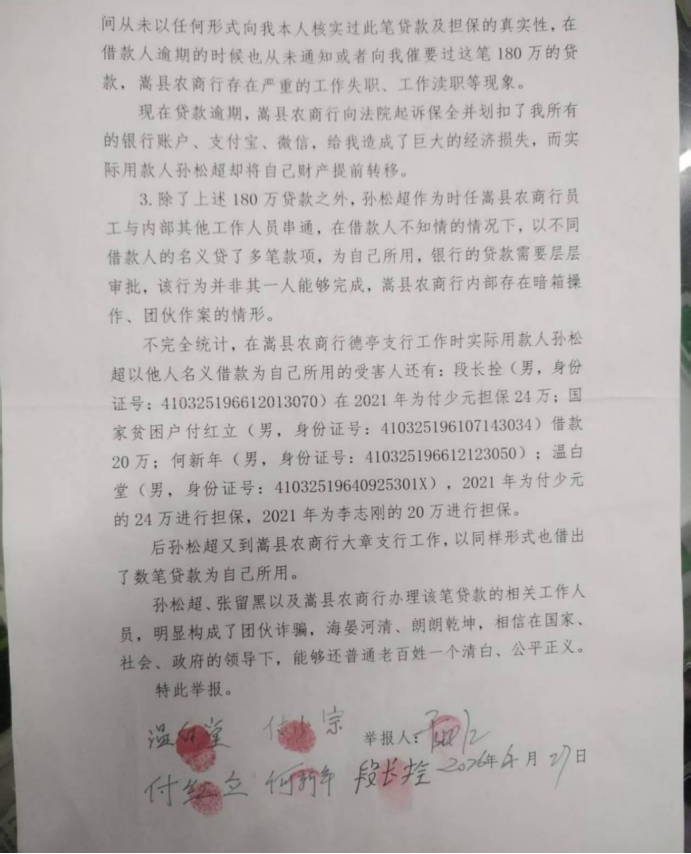 间从未以任何形式向我本人核实过此笔贷款及担保的真实性，在
借款人逾期的时候也从未通知或者向我催要过这笔 180 万的贷
款，嵩县农商行存在严重的工作失职、工作渎职等现象。
现在贷款逾期，嵩县农商行向法院起诉保全并划扣了我所有
的银行账户、支付宝、微信，给我造成了巨大的经济损失，而实
际用款人孙松超却将自己财产提前转移。
3. 除了上述 180 万贷款之外，孙松超作为时任嵩县农商行员
工与内部其他工作人员串通，在借款人不知情的情况下，以不同
借款人的名义贷了多笔款项，为自己所用，银行的贷款需要层层
审批，该行为并非其一人能够完成，嵩县农商行内部存在暗箱操
作、团伙作案的情形。
不完全统计，在嵩县农商行德亭支行工作时实际用款人孙松
超以他人名义借款为自己所用的受害人还有：段长拴（男，身份
证号：410325196612013070）在 2021 年为付少元担保 24 万；国
家贫困户付红立（男，身份证号：410325196107143034）借款
20 万；何新年（男，身份证号：410325196612123050）；温白
堂（男，身份证号：41032519640925301X），2021 年为付少元
的 24 万进行担保，2021 年为李志刚的 20 万进行担保。
后孙松超又到嵩县农商行大章支行工作，以同样形式也借出
了数笔贷款为自己所用。
孙松超、张留黑以及嵩县农商行办理该笔贷款的相关工作人
员，明显构成了团伙诈骗，海晏河清、朗朗乾坤，相信在国家、
社会、政府的领导下，能够还普通老百姓一个清白、公平正义。
特此举报。
温白堂 宗 举报人：
付红立 何新年 段长拴 2026年4月27日